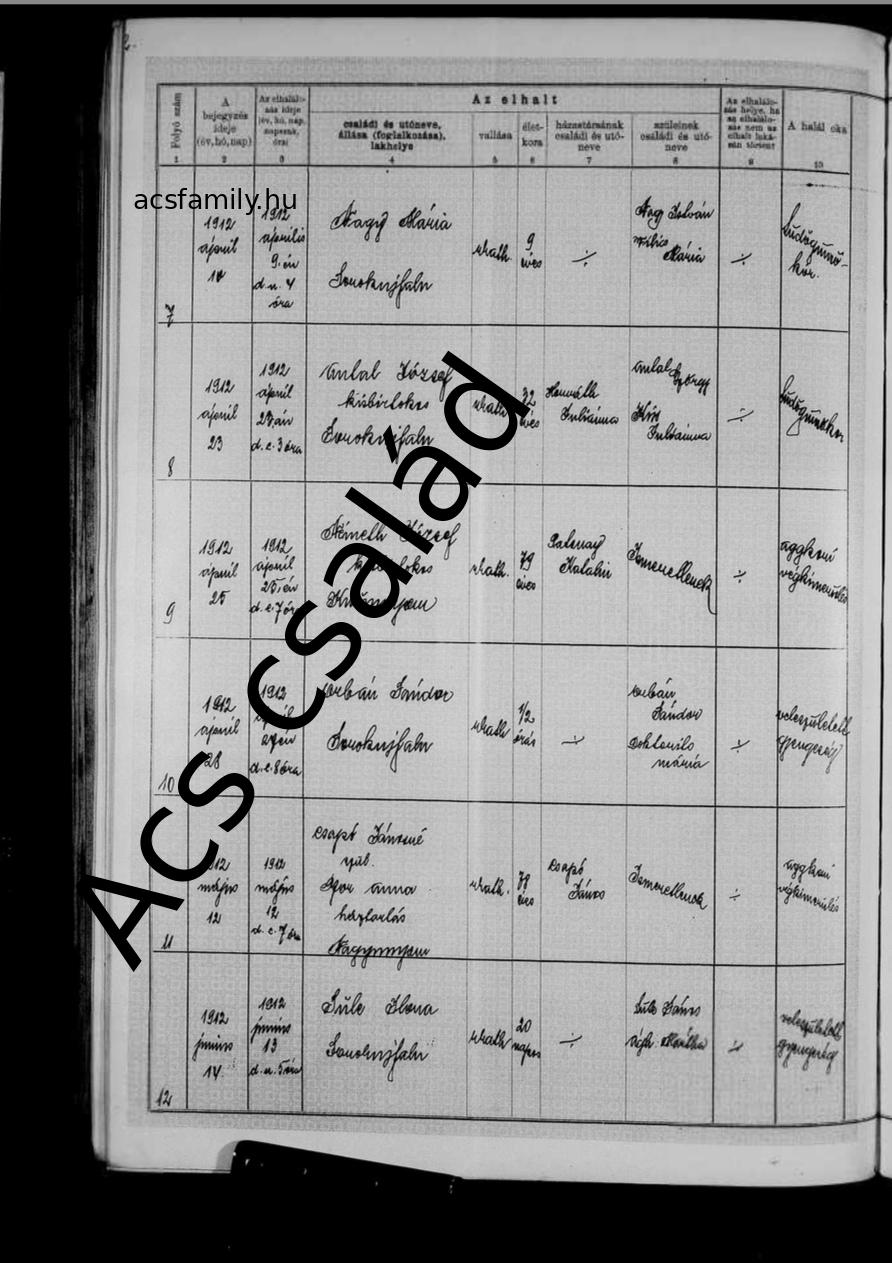 2.
Az elhalt
Folyó szám
A
bejegyzés
ideje
(év, hó, nap)
Az elhalálo-
zás ideje
(év, hó, nap,
napszak,
óra)
családi és utóneve,
állása (foglalkozása),
lakhelye
vallása
élet-
kora
házastársának
családi és utó-
neve
szüleinek
családi és utó-
neve
Az elhalálo-
zás helye, ha
az elhalálo-
zás nem az
elhalt laká-
sán történt
A halál oka
1 2 3 4 5 6 7 8 9 10
acsfamily.hu
7
1912
április
14
1912
április
9-én
d. u. 4
óra
Nagy Mária
Soroknyjfalu
r. kath.
9
éves
÷
Nagy István
Mária
÷
tüdőgümő-
kór.
8
1912
április
23
1912
április
d. e. 3 óra
Antal József
kisbirtokos
r. kath.
32
éves
Horváth
Julianna
Antal György
Kiss
Julianna
÷
tüdőgümőkór
9
1912
április
25
1912
április
25-én
d. e. 7 óra
Németh József
kisbirtokos
r. kath.
79
éves
Katalin
Ismeretlenek
÷
aggkori
végkimerülés
10
1912
április
28
1912
április
27-én
d. e. 8 óra
Orbán Sándor
r. kath.
1/2
órás
÷
Orbán
Sándor
Mária
÷
veleszületett
gyengeség
11
1912
május
12
1912
május
12
d. e. 7 óra
Csapó Jánosné
szül.
Anna
háztartás
r. kath.
78
éves
Csapó
János
Ismeretlenek
÷
aggkori
végkimerülés
12
1912
június
14
1912
június
13
d. u. 5 óra
Süle Ilona
r. kath.
20
napos
÷
Süle János
Vágh Mártha
÷
veleszületett
gyengeség
Acs család